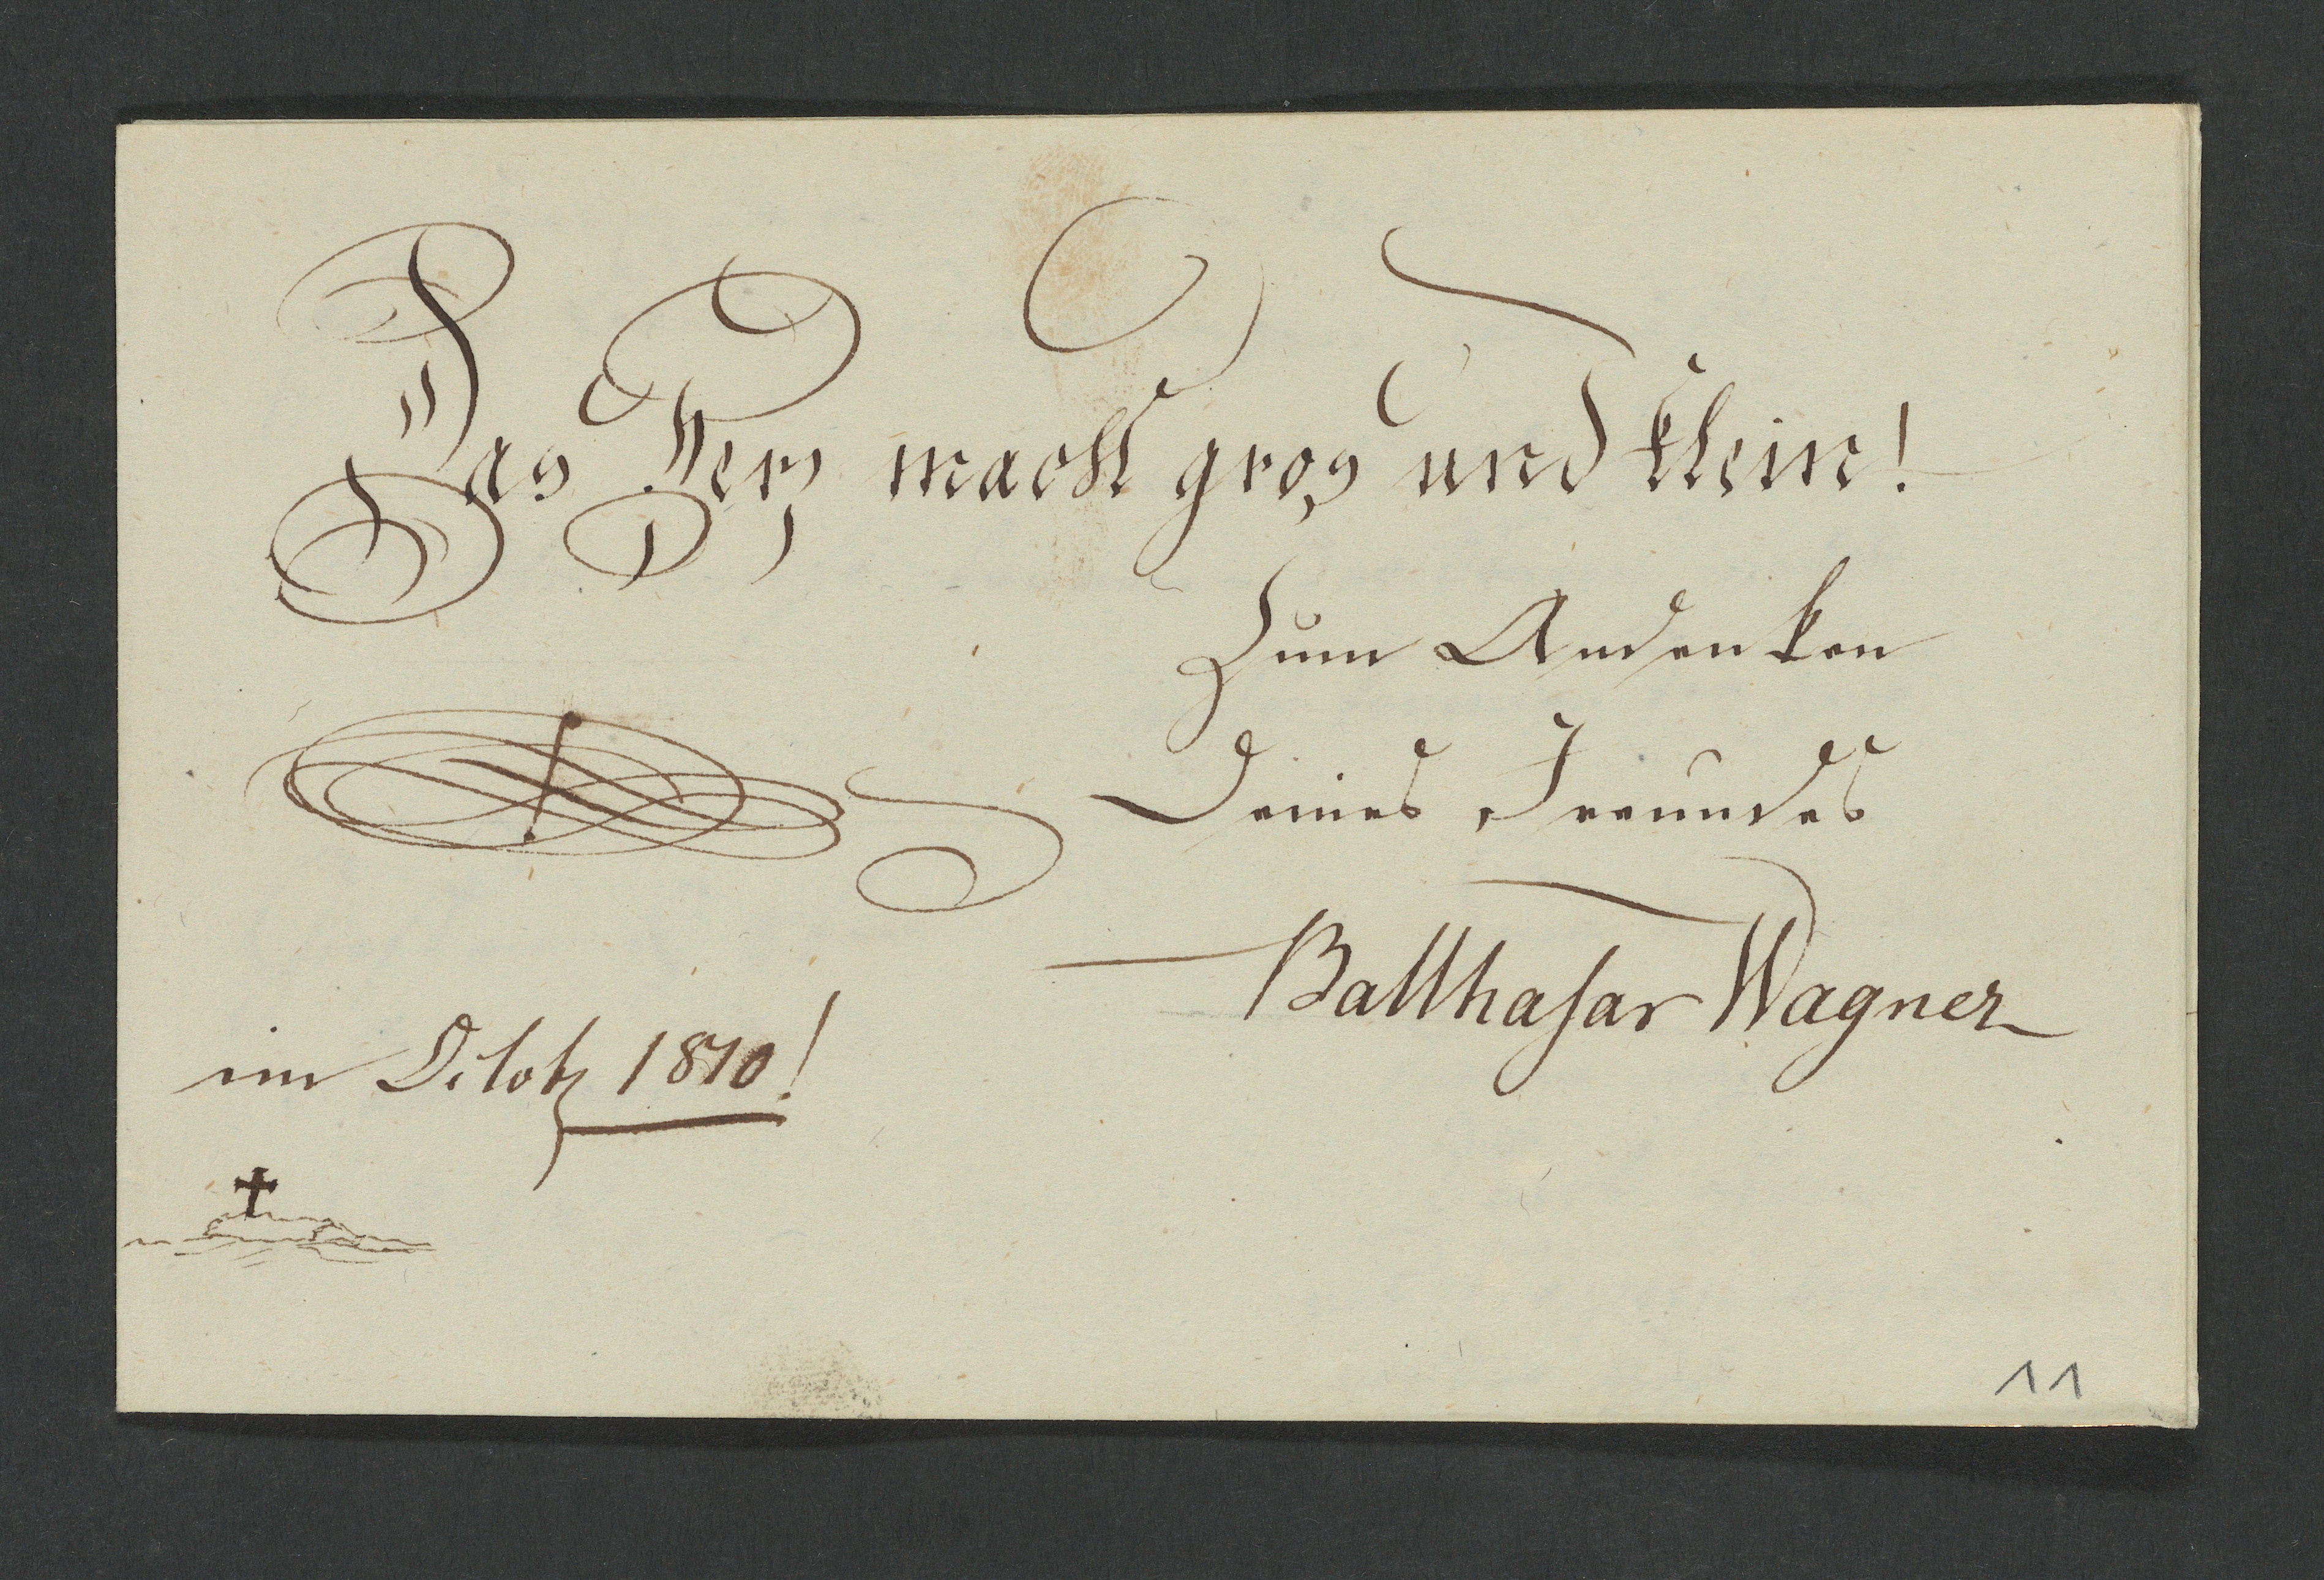 Das Herz macht gros und klein!
Zum Andenken
Deines Freundes
Balthasar Wagner
im Octob 1810!
11